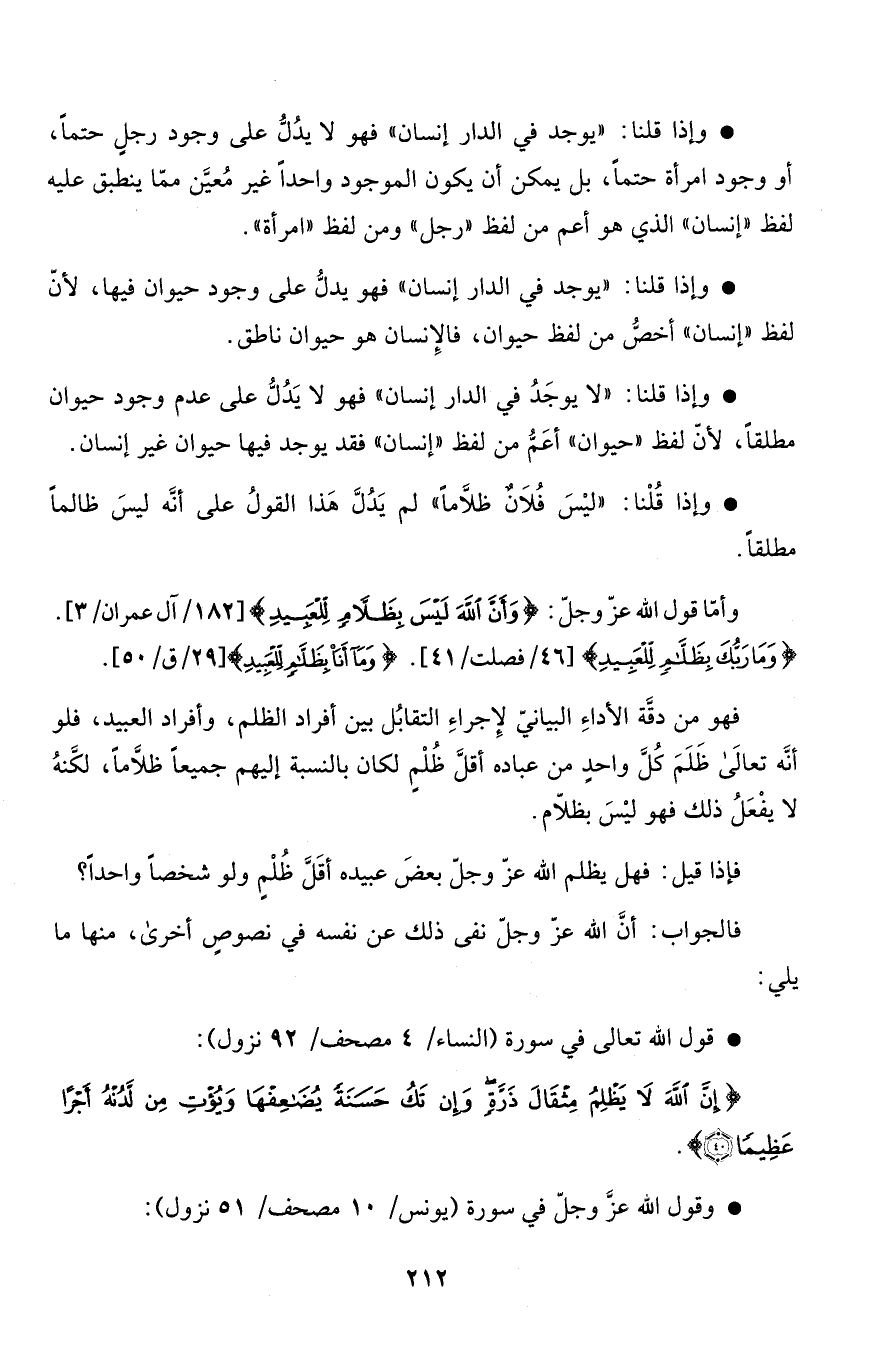 ● وإذا قلنا: «يوجد في الدار إنسان» فهو لا يدُلُّ على وجود رجلٍ حتماً،
أو وجود امرأة حتماً، بل يمكن أن يكون الموجود واحداً غير مُعيَّن ممّا ينطبق عليه
لفظ «إنسان» الذي هو أعم من لفظ «رجل» ومن لفظ «امرأة».
● وإذا قلنا: «يوجد في الدار إنسان» فهو يدلُّ على وجود حيوان فيها، لأنّ
لفظ «إنسان» أخصُّ من لفظ حيوان، فالإِنسان هو حيوان ناطق.
● وإذا قلنا: «لا يوجَدُ في الدار إنسان» فهو لا يَدُلُّ على عدم وجود حيوان
مطلقاً، لأنّ لفظ «حيوان» أعَمُّ من لفظ «إنسان» فقد يوجد فيها حيوان غير إنسان.
● وإذا قُلْنا: «ليْسَ فُلَانٌ ظلَّاماً» لم يَدُلَّ هَذا القولُ على أنَّه ليسَ ظالماً
مطلقاً.
وأمّا قول الله عزّ وجلّ: ﴿وَأَنَّ ٱللَّهَ لَيْسَ بِظَلَّامٍ لِّلْعَبِيدِ﴾ [١٨٢/ آل عمران/ ٣].
﴿وَمَا رَبُّكَ بِظَلَّٰمٍ لِّلْعَبِيدِ﴾ [٤٦/ فصلت/ ٤١]. ﴿وَمَآ أَنَا۠ بِظَلَّٰمٍ لِّلْعَبِيدِ﴾ [٢٩/ ق/ ٥٠].
فهو من دقَّة الأداءِ البيانيّ لإِجراءِ التقابُل بين أفراد الظلم، وأفراد العبيد، فلو
أنَّه تعالَىٰ ظَلَمَ كُلَّ واحدٍ من عباده أقلَّ ظُلْمٍ لكان بالنسبة إليهم جميعاً ظلَّاماً، لكنَّهُ
لا يفْعَلُ ذلك فهو ليْسَ بظلّام.
فإذا قيل: فهل يظلم الله عزّ وجلّ بعضَ عبيده أقَلَّ ظُلْمٍ ولو شخصاً واحداً؟
فالجواب: أنَّ الله عزّ وجلّ نفى ذلك عن نفسه في نصوصٍ أخرىٰ، منها ما
يلي:
● قول الله تعالى في سورة (النساء/ ٤ مصحف/ ٩٢ نزول):
﴿إِنَّ ٱللَّهَ لَا يَظْلِمُ مِثْقَالَ ذَرَّةٍۖ وَإِن تَكُ حَسَنَةً يُضَٰعِفْهَا وَيُؤْتِ مِن لَّدُنْهُ أَجْرًا
عَظِيمًا ٤٠﴾.
● وقول الله عزَّ وجلّ في سورة (يونس/ ١٠ مصحف/ ٥١ نزول):
٢١٢